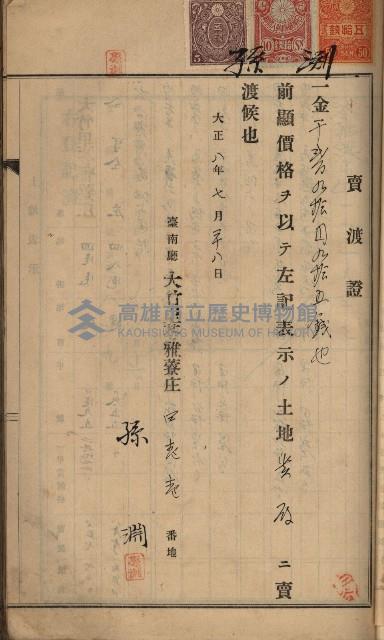 孫渊
賣渡證
一金千壹百九拾円九拾五錢也
前顯價格ヲ以テ左記表示ノ土地貴殿ニ賣
渡候也
大正八年七月廿八日
臺南廳大竹里苓雅寮庄 番地
孫 淵
高雄市立歷史博物館
KAOHSIUNG MUSEUM OF HISTORY